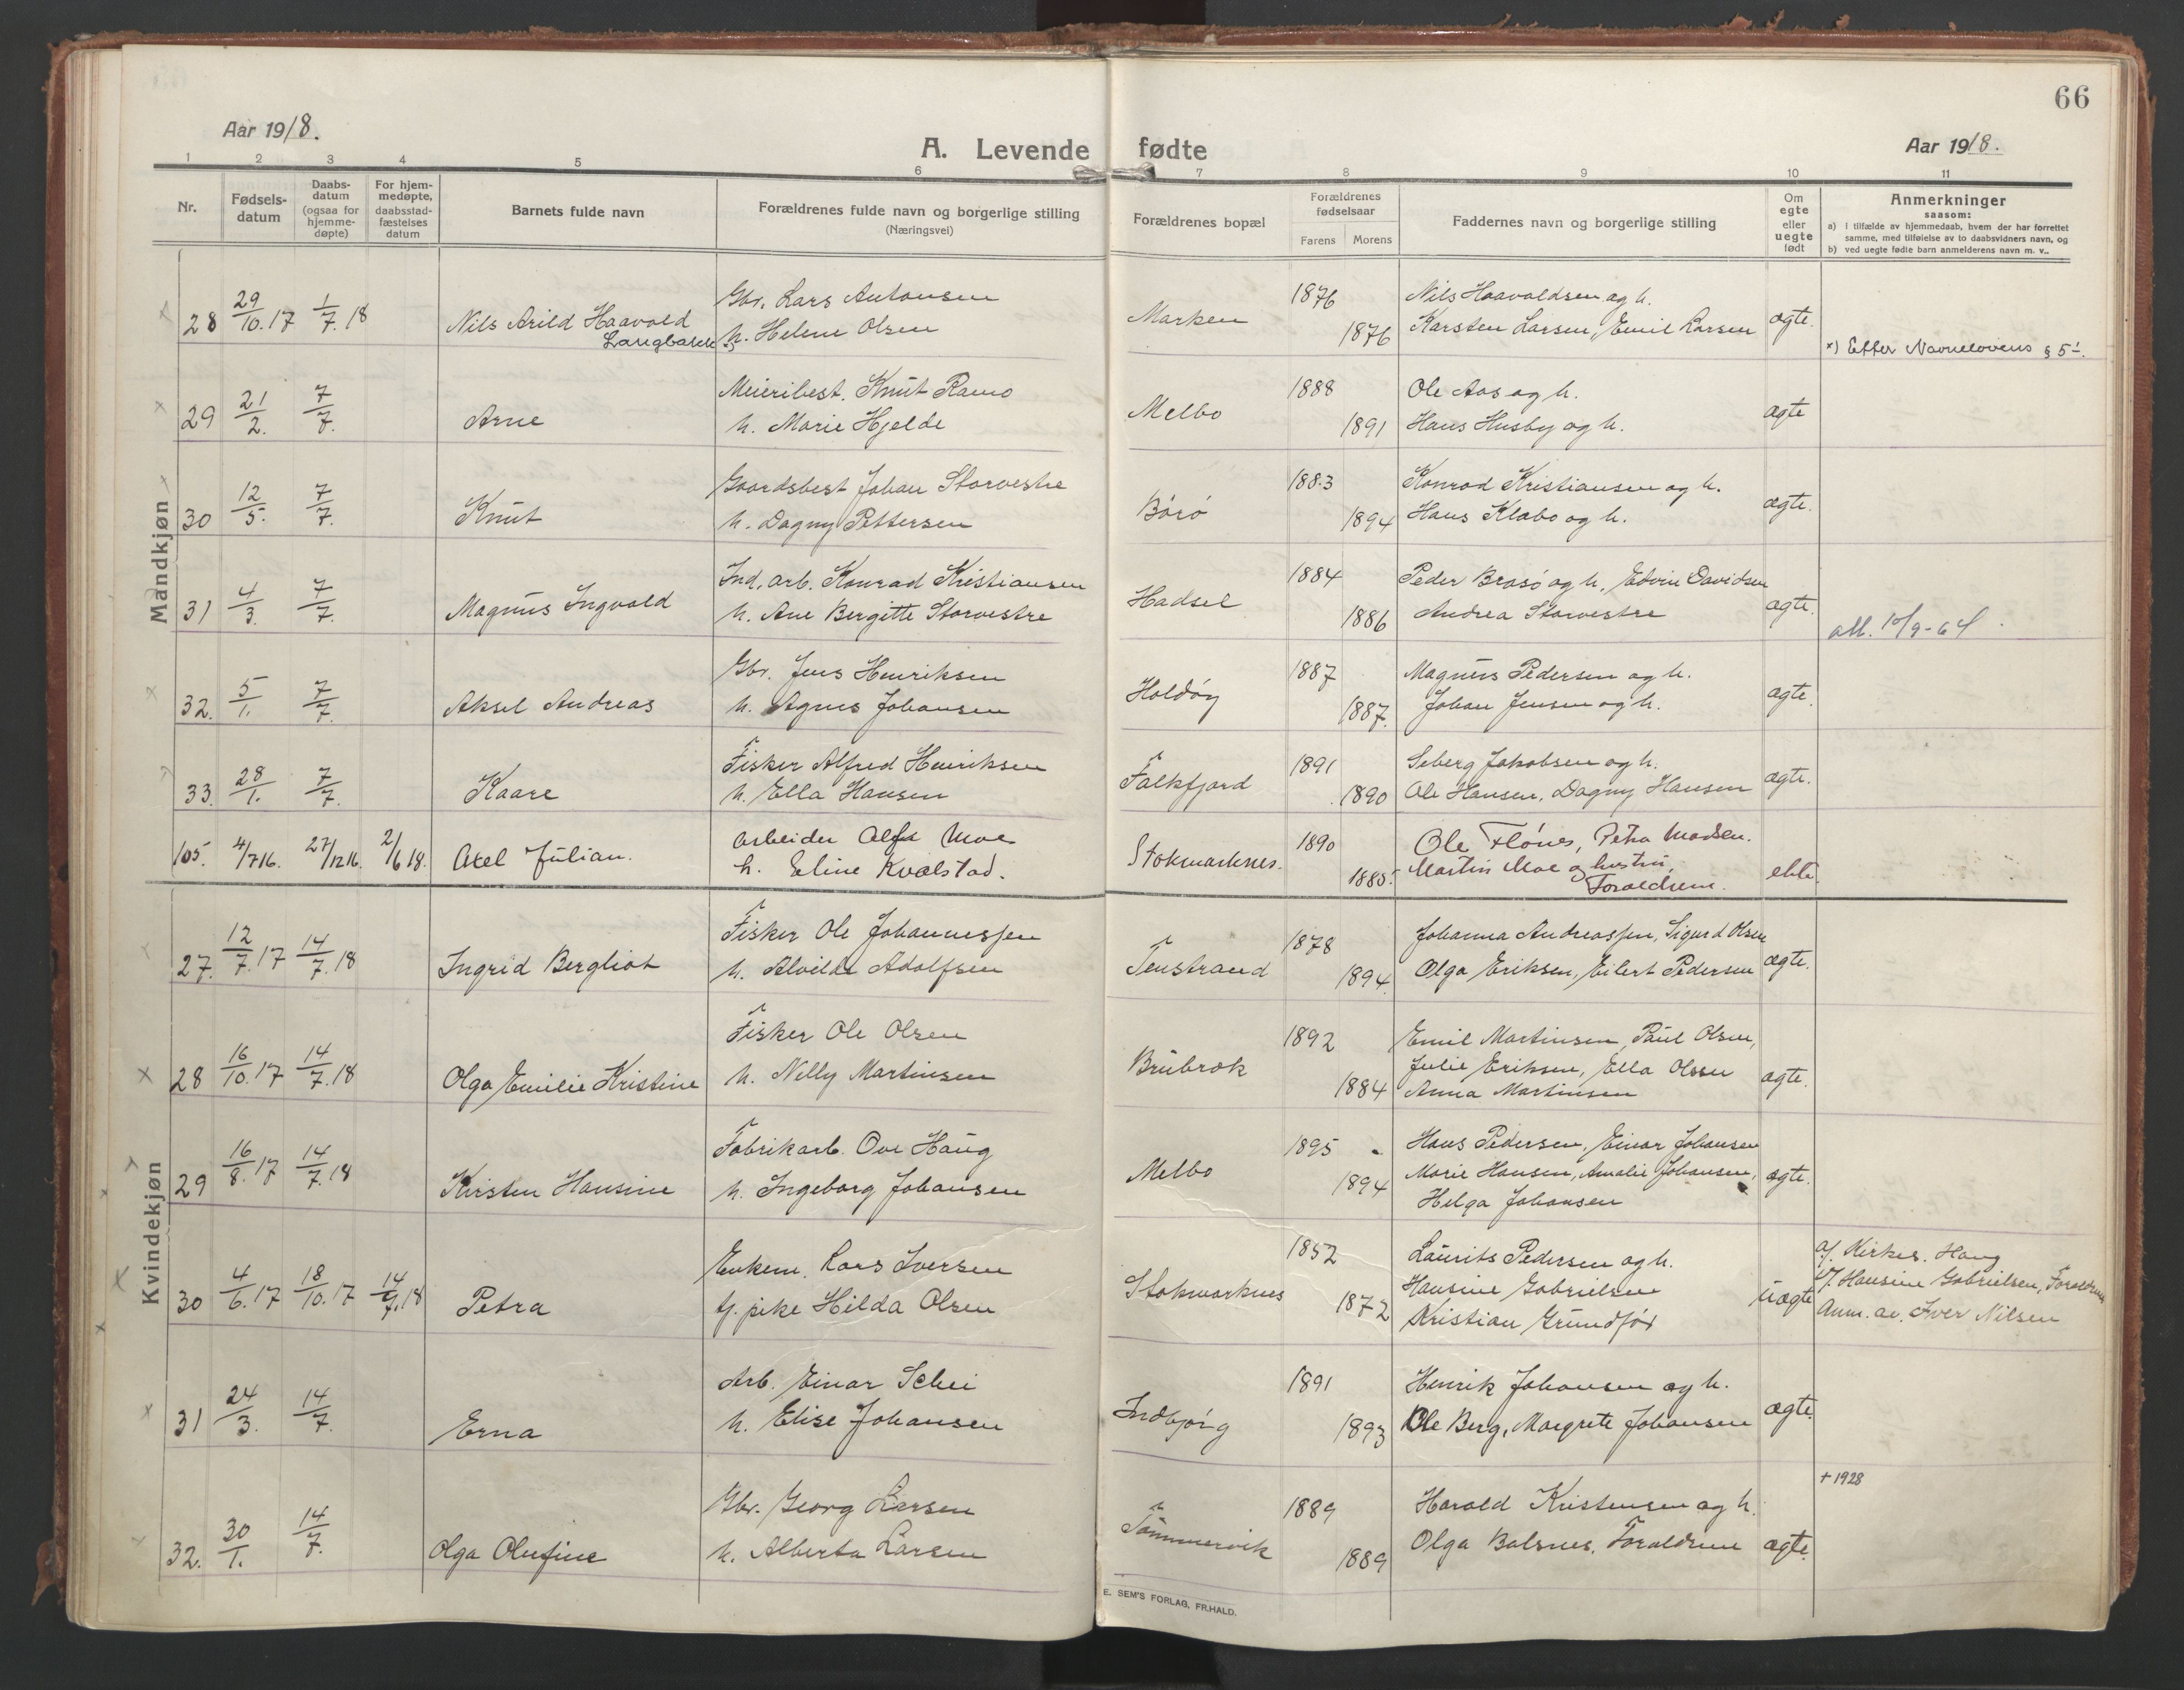 66
Aar 1918.
A. Levende fødte
Aar 1918.
1 2 3 4 5 6 7 8 9 10 11
Nr.
Fødsels-
datum
Daabs-
datum
(ogsaa for
hjemme-
døpte)
For hjem-
medøpte,
daabsstad-
fæstelses
datum
Barnets fulde navn
Forældrenes fulde navn og borgerlige stilling
(Næringsvei)
Forældrenes bopæl
Forældrenes
fødselsaar
Farens Morens
Faddernes navn og borgerlige stilling
Om
egte
eller
uegte
født
Anmerkninger
saasom:
a) i tilfælde av hjemmedaab, hvem der har forrettet
samme, med tilføielse av to daabsvidners navn, og
b) ved uegte fødte barn anmelderens navn m. v..
Mandkjøn
28 29/10.17 1/7.18 Nils Arild Haavold
Langbakk
Gbr. Lars Antonsen
h. Helene Olsen
Marken 1876 1876
Nils Haavoldsen og h.
Karsten Larsen, Emil Larsen
ægte.
x) Efter Navnelovens § 5.
29 21/2. 7/7. Arne
Meieribest. Knut Ramo
h. Marie Hjelde
Melbo 1888 1891
Ole Aas og h.
Hans Husby og h.
ægte
30 12/5. 7/7. Knut
Gaardsbest Johan Storvestre
h. Dagny Pettersen
Börö 1883 1894
Konrad Kristiansen og h.
Hans Klæbo og h.
ægte.
31 4/3. 7/7. Magnus Ingvald
Ind. arb. Konrad Kristiansen
h. Ane Bergitte Storvestre
Hadsel 1884 1886
Peder Brasö og h., Edvin Davidsen
Andrea Storvestre
ægte.
att. 10/9-64
32. 5/1. 7/7. Aksel Andreas
Gbr. Jens Henriksen
h. Agnes Johansen
Holdöy 1887 1887.
Magnus Pedersen og h.
Johan Jensen og h.
ægte.
33. 28/1. 7/7. Kaare
Fisker Alfred Henriksen
h. Ella Hansen
Falkfjord 1891 1890
Seberg Jakobsen og h.
Ole Hansen, Dagny Hansen
ægte.
105. 4/716. 27/1216. 2/618. Axel Julian.
Arbeider Alf Moe
h. Eline Kvalstad.
Stokmarknes. 1890 1885.
Ole Flönes, Petra Madsen.
Martin Moe og hustru,
Forældrene.
ekte.
Kvindekjøn
27. 12/7.17 14/7.18 Ingrid Bergliot
Fisker Ole Johannessen
h. Alvilde Adolfsen
Tenstrand 1878 1894.
Johanna Andreassen, Sigurd Olsen
Olga Eriksen, Eilert Pedersen
ægte.
28 16/10.17 14/7.18 Olga Emilie Kristine
Fisker Ole Olsen
h. Nelly Martinsen
Brubrok 1892 1884
Emil Martinsen, Paul Olsen,
Julie Eriksen, Ella Olsen
Anna Martinsen
ægte.
29 16/8.17 14/7.18 Kirsten Hansine
Fabrikarb. Ove Haug
h. Ingeborg Johansen
Melbo 1895 1894
Hans Pedersen, Einar Johansen
Marie Hansen, Amalie Johansen,
Helga Johansen
ægte.
30 4/6.17 18/10.17 14/7.18 Petra
Enkem. Lars Iversen
tj. pike Hilda Olsen
Stokmarknes 1852 1872
Laurits Pedersen og h.
Hansine Gabrielsen
Kristian Grundför
uægte
a/. Kirkes. Haug
Hansine Gabrielsen, Forældrene
Anm. av. Iver Nilsen
31 24/3. 14/7. Erna
Arb. Einar Schei
h. Elise Johansen
Indbjörg 1891 1893
Henrik Johansen og h.
Ole Berg, Margrete Johansen
ægte.
32. 30/1. 14/7. Olga Olufine
Gbr. Georg Larsen
h. Alberta Larsen
Tömmervik 1889 1889
Harald Kristensen og h.
Olga Balsnes, Forældrene
ægte.
+ 1928
E. SEM'S FORLAG, FR.HALD.